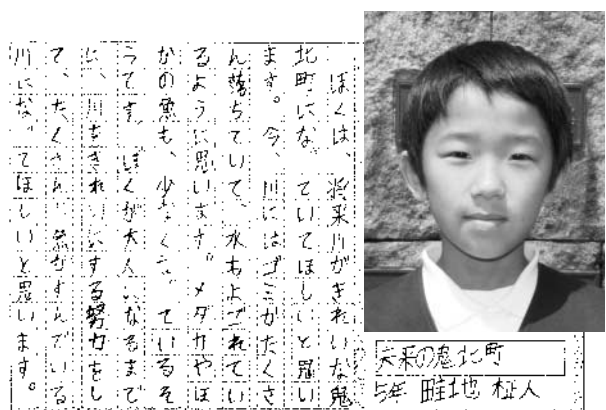 ぼくは、将来川がきれいな鬼
北町になっていてほしいと思い
ます。今、川にはゴミがたくさ
ん落ちていて、水もよごれてい
るように思います。メダカやほ
かの魚も、少なくなっているそ
うです。ぼくが大人になるまで
に、川をきれいにする努力をし
て、たくさん魚がすんでいる
川になってほしいと思います。
未来の鬼北町
5年 畦地 柾人